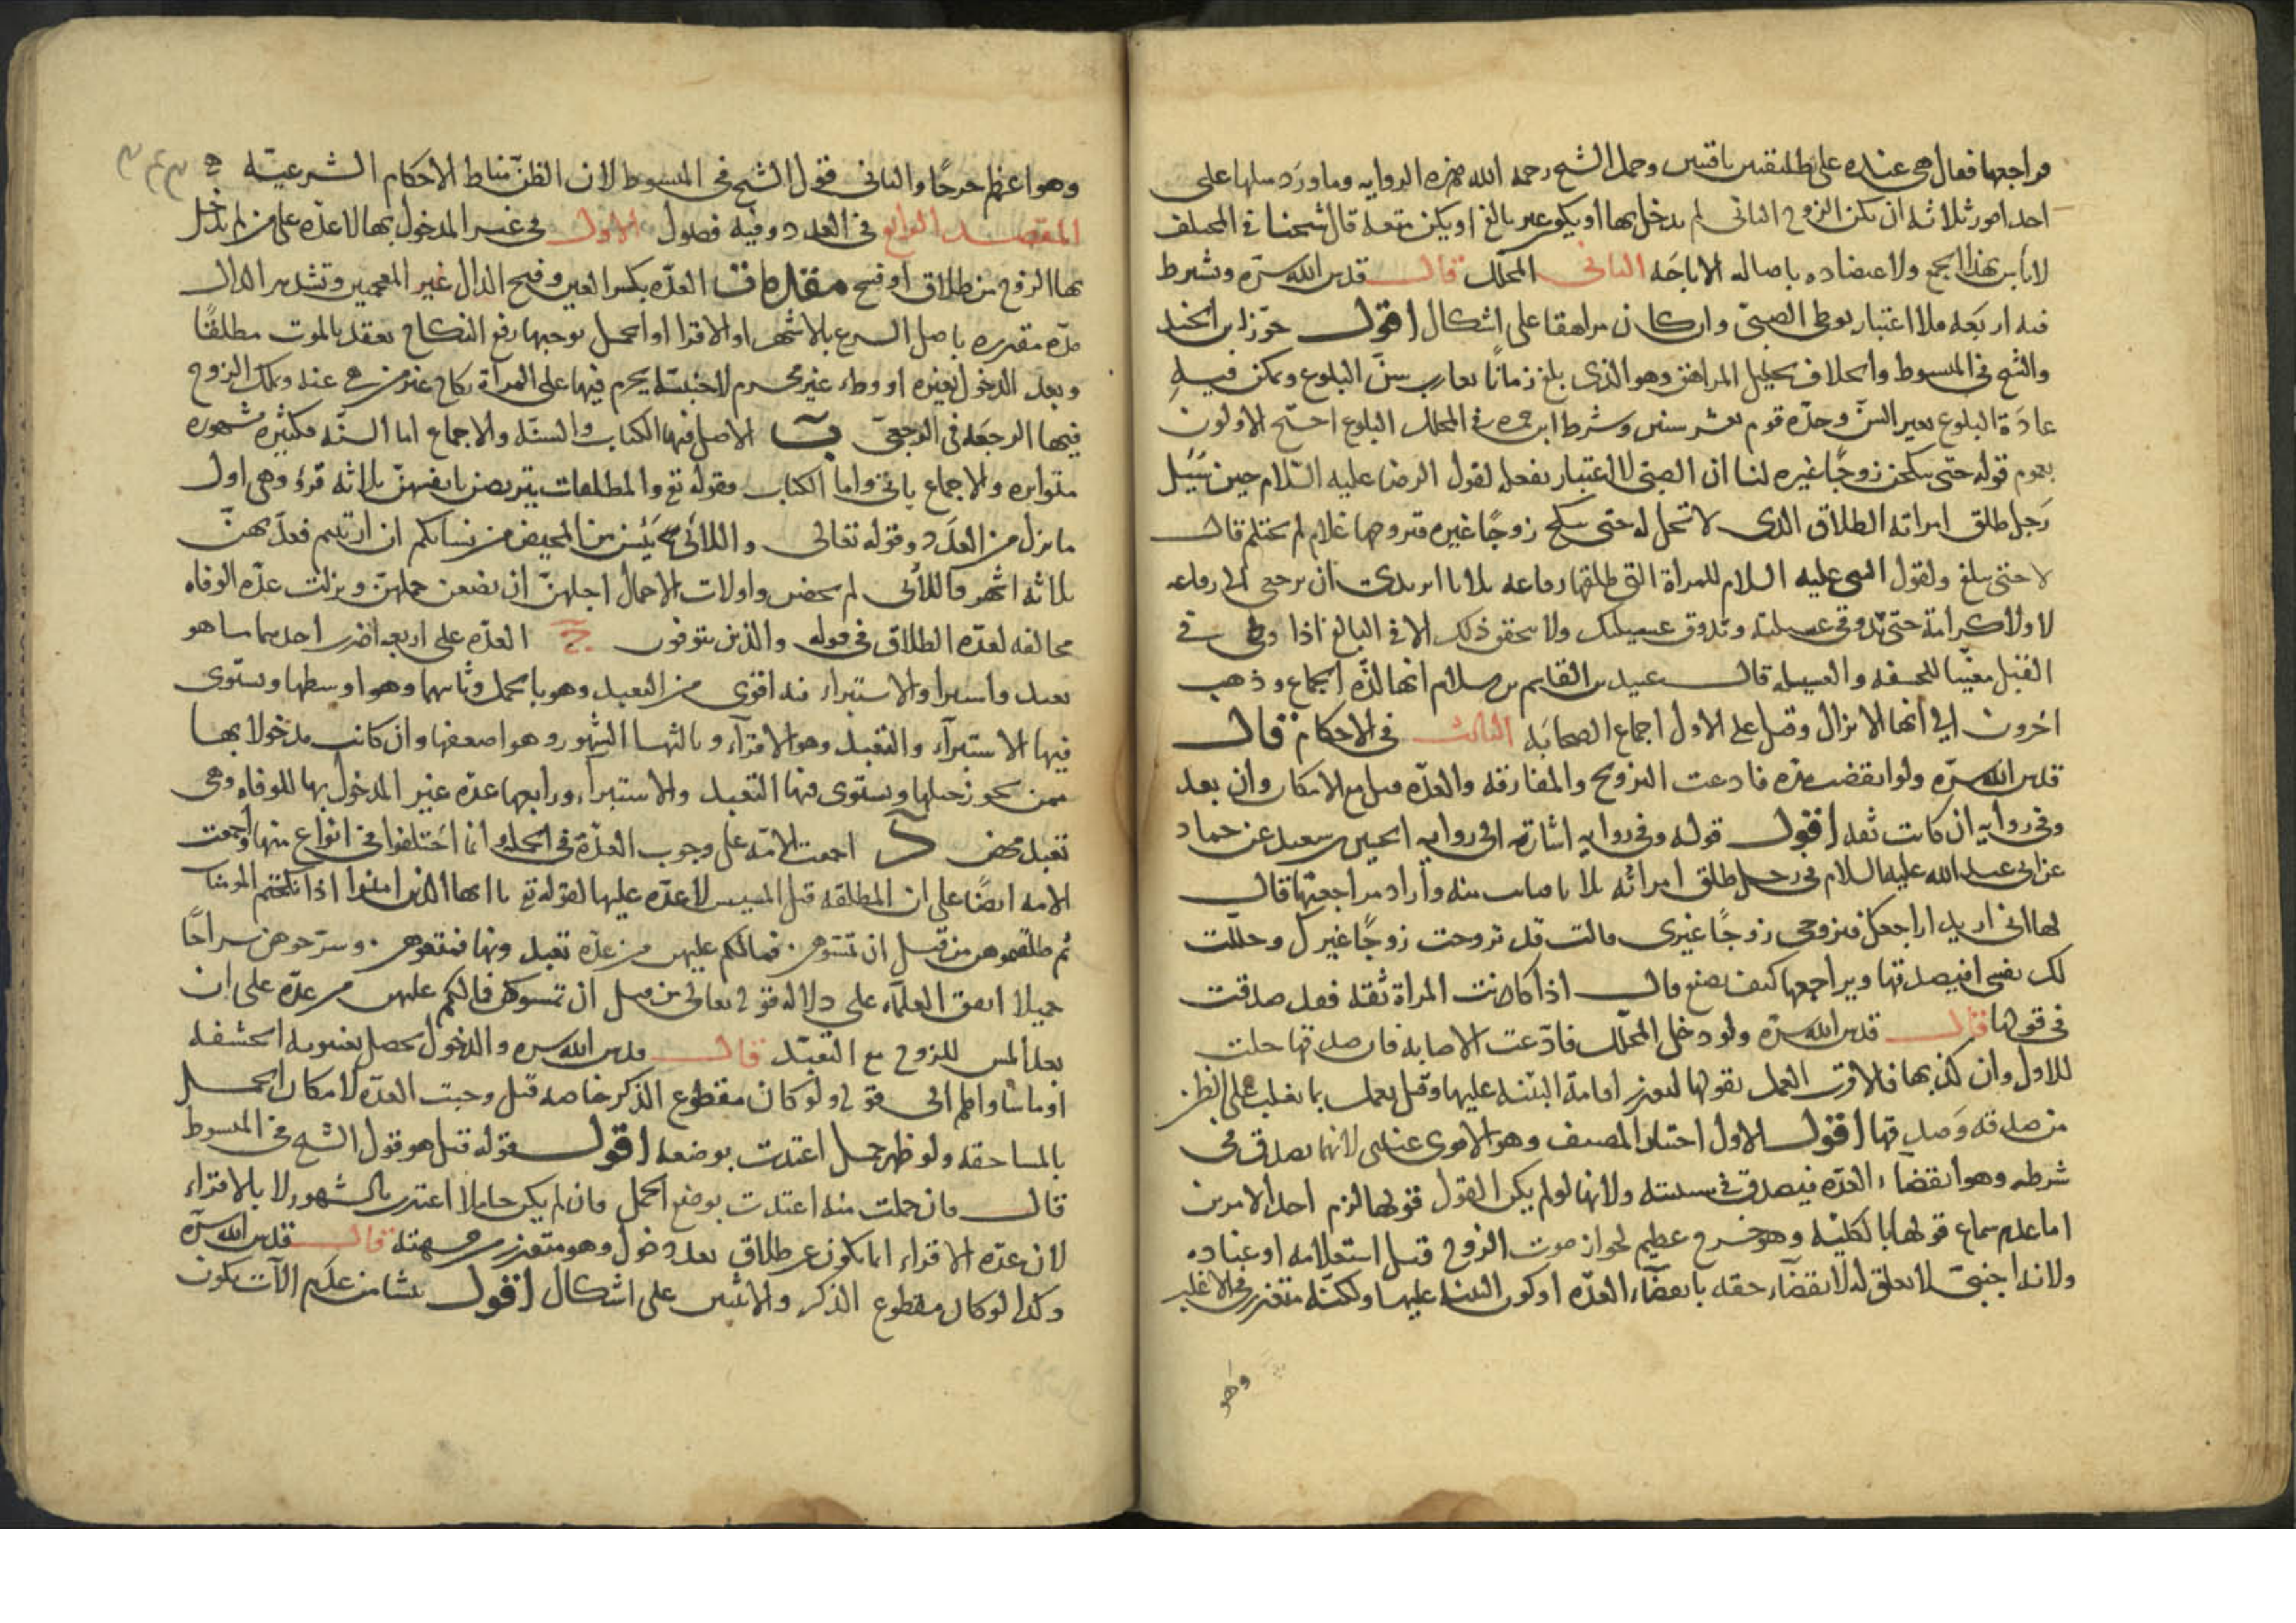 فراجعها فقال هي عنده على تطليقتين باقيتين وحمل الشيخ رحمه الله هذه الرواية وما ورد مثلها على
احد امور ثلاثة ان يكن الزوج الثانى لم يدخل بها او يكون غير بالغ او يكن متعة قال شيخنا في المختلف
لا بأس بهذا الجمع ولاعتضاده باصالة الاباحَة الثانى المحلّل قال قدس الله سرّه ويشرط
فيه اربَعة فلا اعتبار بوطى الصبىّ وان كان مراهقا على اشكال اقول جوّز ابن الجنيد
والشيخ في المبسوط والخلاف تحليل المراهق وهو الذى بلغ زمانًا يقارب سنّ البلوغ ويمكن فيهِ
عادَة البلوغ بغير السنّ وحدّه قوم بعشر سنين وشرط ابن حمزه في المحلل البلوغ احتج الاولون
بعموم قوله حتى تنكحن زوجًا غيره لنا ان الصبى لا اعتبار بفعله لقول الرضا عليه السّلام حين سُئِل
رَجل طلق امراته الطلاق الذى لا تحل له حتى تنكح زوجًا غيره فتزوجها غلام لم يحتلم قال
لا حتى يبلغ ولقول النبى عليه السلام للمراة التى طلقها رفاعه ثلاثا اتريدين ان ترجعى الى رفاعه
لا ولا كرامة حتى تذوقى عسيلته ويذوق عسيلتك ولا يتحقق ذلك الا في البالغ اذا وطى في
القبل مغيّبا للحشفه والعسيله قال عبيد بن القاسم بن سلام انها لذّه الجماع وذهب
اخرون الى انها الانزال وقيل على الاول اجماع الصحابَه الثالث فى الاحكام قال
قدس الله سرّه ولو انقضت مدّه فادعت التزويج والمفارقه والعدّه قبل مع الامكان وان بعد
وفى رواية ان كانت ثقه اقول قوله وفى رواية اشارة الى رواية الحسين بن سعيد عن حماد
عن ابى عبد الله عليه السلام فى رجل طلق امراته ثلاثا فبانت منه وأراد مراجعتها قال
لها انى اريد اراجعك فتزوجى زوجًا غيرى قالت قد تزوجت زوجًا غيرك وحلّلت
لك نفسى افيصدقها ويراجعها كيف يصنع قال اذا كانت المراة ثقه فقد صدقت
فى قولها قال قدس الله سرّه ولو دخل المحلّل فادّعت الاصابه فان صدقها حلت
للاول وان كذبها فالاقرب العمل بقولها لتعذر اقامة البيّنه عليها وقيل يعمل بما يغلب على الظن
من صدقه وَصدقها اقول الاول اختيار المصنف وهو الاقوى عندى لانها تصدق فى
شرطه وهو انقضاء العدّه فيصدق فى سببه ولانها لو لم يكن القول قولها لزم احد الامرين
اما عدم سماع قولها بالكليّه وهو حرج عظيم لجواز موت الزوج قبل استعلامه او عناده
ولانه اجنبىّ لا تعلق له لانقضاء حقه بانقضاء العدّه او كون البينه عليها ولكنّه متعذر فى الاغلب
وهو
وهو اعظم حرجًا والثانى قول الشيخ فى المبسوط لان الظنّ مناط الاحكام الشرعيّه
المقصد الرابع فى العدد وفيه فصول الاول فى غير المدخول بها لا عدّه على من لم يدخل
بها الزوج من طلاق او فسخ مقدمات آ العدّه بكسر العين وفتح الدال غير المعجمين وتشديد الدال
مدّه مقدره باصل الشرع بالاشهر او الاقرا او الحمل يوجبها رفع النكاح بعقد بالموت مطلقًا
وبعد الدخول بغيره او وطء غير محرم لاجنبيّة يحرم فيها على المرأة نكاح غير من هى عنه ويملك الزوج
فيها الرجعَه فى الرجعىّ ب الاصل فيها الكتاب والسنّه والاجماع اما السنّه فكثيره مشهوره
متواتره والاجماع ياتى واما الكتاب فقوله تع والمطلقات يتربصن بانفسهنّ ثلاثه قرؤ وهى اول
ما نزل من العدَد وقوله تعالى واللائى يَئِسن من المحيض من نسائكم ان ارتبتم فعدّتهنّ
ثلاثه اشهر واللائى لم يحضن واولات الاحمال اجلهنّ ان يضعن حملهنّ ونزلت عدّه الوفاه
مخالفه لعدّه الطلاق فى قوله والذين يتوفون ج العدّه على اربعه اضرب احدها ما هو
تعبد واستبرا والاستبراء فيه اقوى من التعبد وهو بالحمل وثانيها وهو اوسطها ويستوى
فيها الاستبرآء والتعبد وهو الاقرآء وثالثها الشهور وهو اضعفها وان كانت مدخولا بها
ممن يجوز حبلها ويستوى فيها التعبد والاستبراء ورابعها عدّه غير المدخول بها للوفاه وهى
تعبد محض د اجمعت الامّه على وجوب العدّة فى الجمله وانما اختلفوا فى انواع منها واجمعت
الامه ايضًا على ان المطلقه قبل المسيس لا عدّه عليها لقوله تع يا ايها الذين امنوا اذا نكحتم المومنات
ثم طلقتموهن من قبل ان تمسّوهن فما لكم عليهن من عدّه تعتدونها فمتعوهن وسرّحوهن سراحًا
جميلا اتفق العلمآء على دلاله قوله تعالى من قبل ان تمسوهن فما لكم عليهن من عدّه على ان
بعد المس للزوج مع التعبّد قال قدس الله سره والدخول يحصل بغيبوبه الحشفه
او ما ساواها الى قوله ولو كان مقطوع الذكر خاصه قيل وجبت العدّه لامكان الحمل
بالمساحقه ولو ظهر حمل اعتدت بوضعه اقول قوله قيل هو قول الشيخ فى المبسوط
قال فان حملت منه اعتدت بوضع الحمل فان لم يكن حاملا اعتدت بالشهور لا بالاقراء
لان عدّه الاقراء انما يكون عن طلاق بعد دخول وهو متعذر من جهته قال قدس الله سرّه
وكذا لو كان مقطوع الذكر والانثيين على اشكال اقول ينشا من عدم الآت يكون